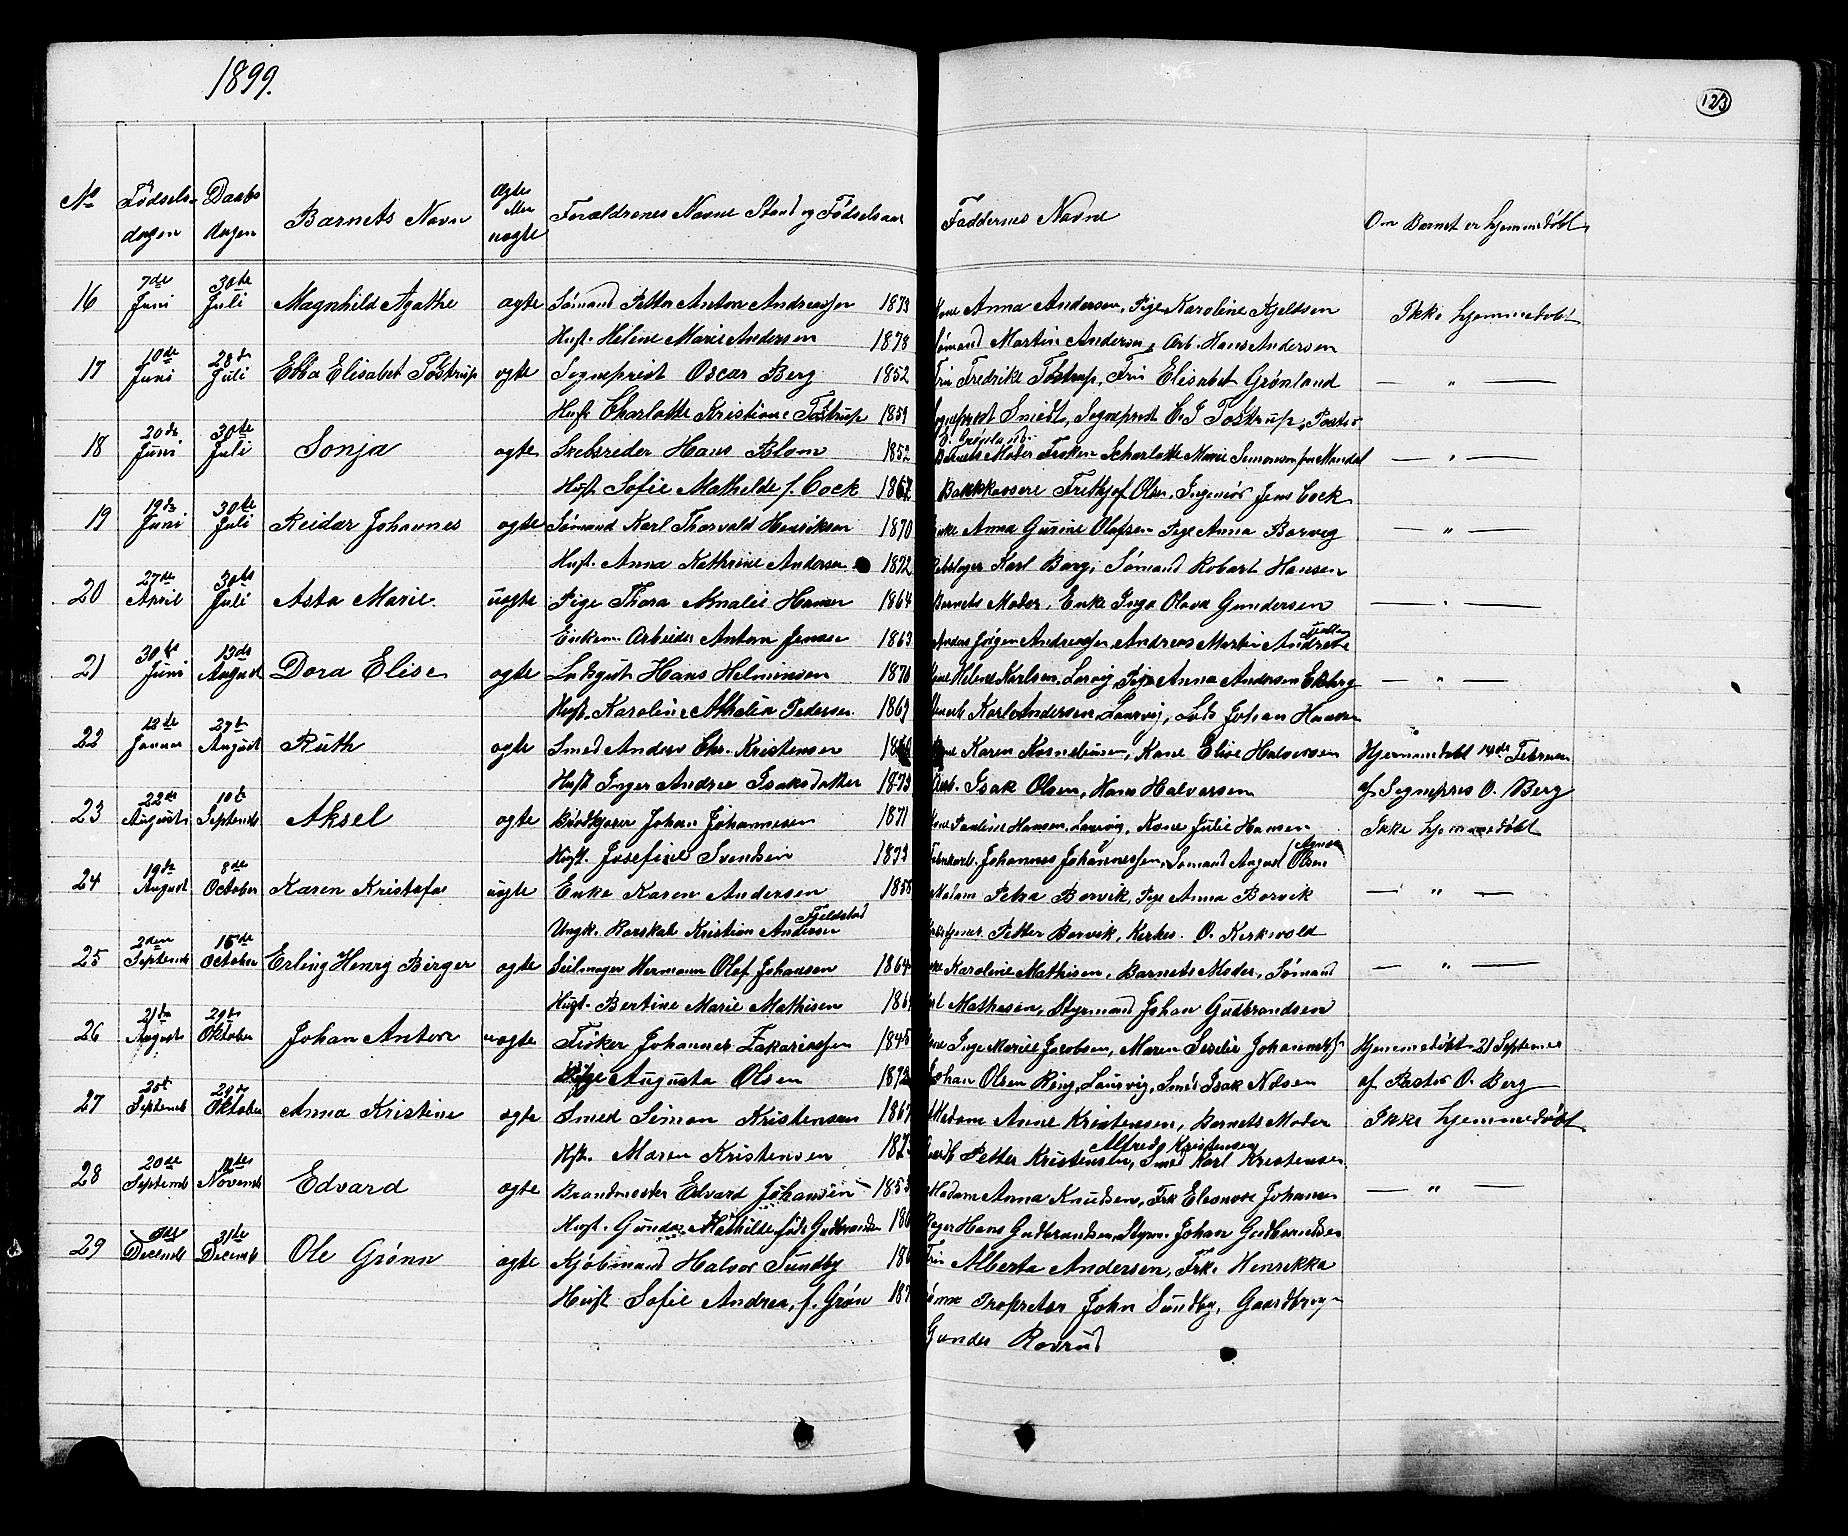 1899.
123
No Fødsels- dagen Daabs dagen Barnets Navn ægte eller uægte Forældrenes Navne Stand og Fødselsaar Faddernes Navne Om Barnet er hjemmedøbt
16 7de Juni 30te Juli Magnhild Agathe ægte Sømand Petter Anton Andreassen 1873 Anna Andersen, Pige Karoline Kjeldsen Ikke hjemmedøbt
Hust. Helene Marie Andersen 1878 Sømand Martin Andersen, Arb. Hans Andersen
17 10de Juni 28de Juli Ebba Elisabet Tostrup ægte Sogneprest Oscar Berg 1852 Fru Fredrikke Tostrup, Fru Elisabet Grønland — " —
Hust. Charlotte Kristiane Tostrup 1859 Sogneprest Smidt, Sogneprest C. J. Tostrup, Pastor
18 20de Juni 30te Juli Sonja ægte Skibsreder Hans Blom 1852 Barnets Moder Frøken Scharlotte Marie Simonsen fra Mandal — " —
Hust. Sofie Mathilde f. Cock 1867 Bankkasserer Frithjof Olsen, Ingeniør Jens Cock
19 19de Juni 30te Juli Reidar Johannes ægte Sømand Karl Thorvald Henriksen 1870 Enke Anna Gurine Olafsen Pige Anna Borvig — " —
Hust. Anna Kathrine Andersen 1872 Karl Borg, Sømand Robart Hansen
20 27de April 30te Juli Asta Marie uægte Pige Thora Amalie Hansen 1864 Barnets Moder, Enke Inga Olava Gundersen — " —
Enkem. Arbeider Anton Jensen 1863 Jørgen Andreassen, Andreas Martin
21 30te Juni 13de August Dora Elise ægte Hans Helminsen 1870 Helene Karlsen, Larvig, Pige Anna Andersen — " —
Hust. Karoline Athelia Pedersen 1869 Karl Andersen, Laurvig, Johan Hansen
22 13de Januar 27de August Ruth ægte Smed Andrev Chr. Kristensen Kone Karen Korneliusen, Kone Elise Halvorsen Hjemmedøbt 14de Februar
Hust Inger Andrea Isaksdatter 1873 Arb. Isak Olsen, Hans Halvorsen af Sognepres O. Berg
23 22de August 10de Septemb Aksel ægte Johan Johannesen 1871 Kone Pauline Hansen, Laurvig, Kone Julie Hansen Ikke hjemmedøbt
Hust. Josefine Svendsen 1873 Johannes Johannessen, Sømand August Olsen
24 19de August 8de October Karen Kristofa uægte Enke Karen Andersen 1858 Madam Petra Borvik, Pige Anna Borvik — " —
Ungk. Kristian Andersen Fjeldstad Petter Borvik, Kirkes. O. Kirkevold
25 2den Septemb 15de October Erling Henry Birger ægte Seilmager Hermann Olaf Johansen 1864 Karoline Mathisen, Barnets Moder, Sømand — " —
Hust. Bertine Marie Mathisen Mathesen, Styrmand Johan Gudbrandsen
26 21de August 29de Oktober Johan Anton uægte Fisker Johannes Zakariassen 1845 Inge Marie Jacobsen, Maren Sesilie Johannessen Hjemmedøbt 21 Septemer
Pige Augusta Olsen 1872 Johan Olsen Ring, Laurvig, Smed Isak Nilsen af Pastor O. Berg
27 20de Septemb 29de Oktober Anna Kristine ægte Smed Simon Kristensen 1867 Madam Anne Kristensen, Barnets Moder Ikke hjemmedøbt
Hst. Maren Kristensen Petter Kristensen, Alfred Kristensen Smed Karl Kristensen
28 20de Septemb Novemb Edvard ægte Brandmester Edvard Johansen 1853 Madam Anna Knudsen, Frk Eleonore Johansen — " —
Hust. Gunda Mathilde føde Gudbrandsen Hans Gudbrandsen, Styrm. Johan Gudbrandsen
29 Decemb 31te Decemb Ole Grønn ægte Kjøbmand Halvor Sundby Fru Alberta Andersen, Frk. Henrikka
Hust Sofie Andrea, f. Grøn Proprietær John Sundby, Gaardbruger
Gunder Rovrud